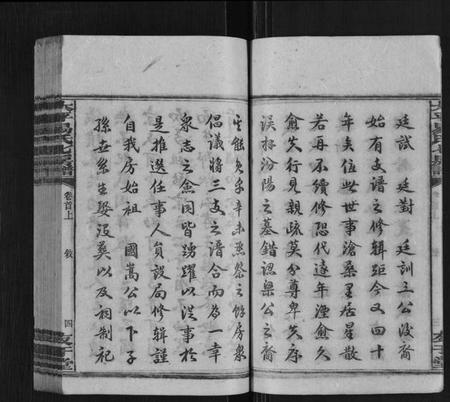 廷試　廷對　廷訓三公後裔
始有支譜之修輯距今又四十
年矣伹此世事滄桑星居星散
若再不續修恐代遠年湮愈久
愈失行見親疏莫分尊卑失序
誤拐汾陽之墓錯認梁公之裔
生餘矣予辛未忝黎之餘房衆
倡議將三支之譜合而為一幸
衆志之僉同皆踴躍以從事於
是推選任事人員設局修輯謹
自我房始祖　國嵩公以下子
孫世系生娶歿葬以及祠制祀
卷首上　敘　四